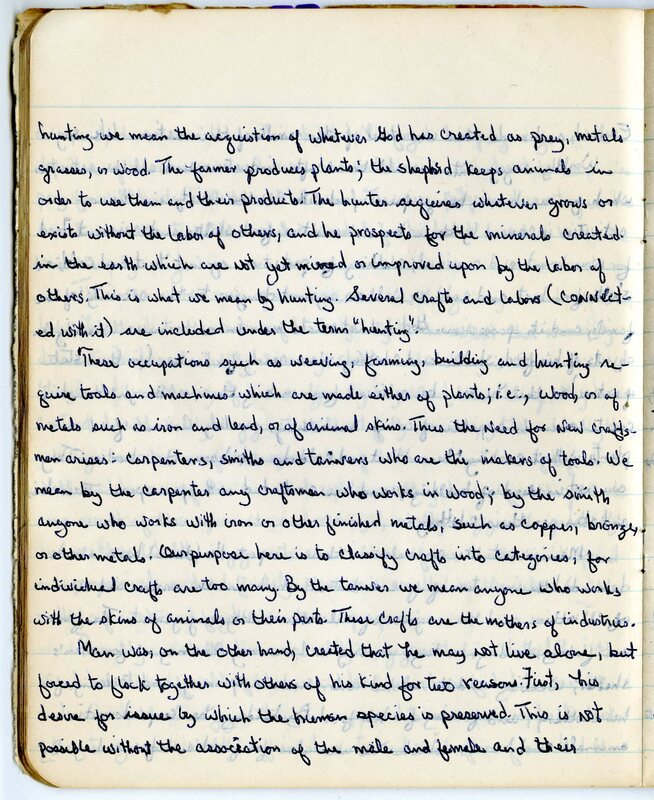 hunting we mean the acquistion of whatever God has created as prey, metals
grasses, or wood. The farmer produces plants; the shepherd keeps animals in
order to use them and their products. The hunter aqcuires whatever grows or
exists without the labor of others, and he prospects for the minerals created
in the earth which are not yet mixed or improved upon by the labor of
others. This is what we mean by hunting. Several crafts and labors (connect-
ed with it) are included under the term "hunting".
These occupations such as weaving, farming, building and hunting re-
quire tools and machines which are made either of plants; i.e., wood, or of
metals such as iron and lead, or of animal skins. Thus the need for new crafts-
men arises: carpenters, smiths and tanners who are the makers of tools. We
mean by the carpenter any craftsman who works in wood; by the smith
anyone who works with iron or other finished metals, such as copper, bronze,
or other metals. Our purpose here is to classify crafts into categories; for
individual crafts are too many. By the tanner we mean anyone who works
with the skins of animals or their parts. These crafts are the mothers of industries.
Man was, on the other hand, created that he may not live alone, but
forced to flock together with others of his kind for two reasons. First, his
desire for issue by which the human species is preserved. This is not
possible without the association of the male and female and their